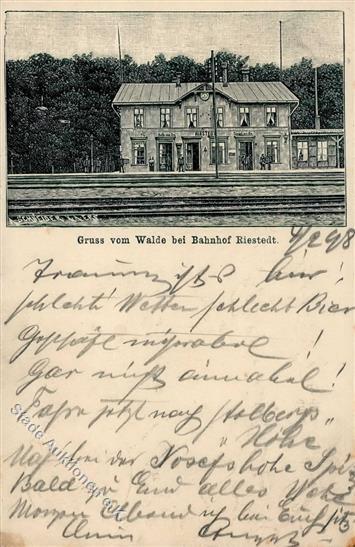 RIESTEDT
Gruss vom Walde bei Bahnhof Riestedt.
4/2 98
Traurig ist's hier!
schlecht Wetter, schlecht Bier
Geschäft miserabel!
Gar nicht aimabel!
Fahre jetzt nach Stolbergs
"Höhe"
der Josefshöhe
Bald zu End alles
Morgen Abend bei Euch
Stade Auktionen